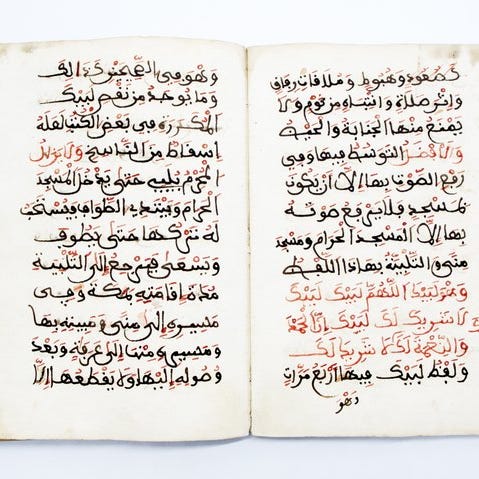 كصعود وهبوط وملاقات رفاق
واثر صلاة وانتباه من نوم ولا
يمنع منها الجنابة والحيض
والافضل التوسط فيها وفي
رفع الصوت بها الا ان يكون
بمسجد فلا يرفع صوته
بها إلا المسجد الحرام ومسجد
منى والتلبية بهاذا اللفظ
وهو لبيك اللهم لبيك لبيك
لا شريك لك لبيك إن الحمد
والنعمة لك لا شريك لك
ولفظ لبيك فيها أربع مرات
وهو
وهو في الصحيحين
وما يوجد من نقص لبيك
المكررة في بعض الكتب لعله
إسقاط من الناسخ ولا يزال
المحرم يلبي حتى يدخل المسجد
الحرام ويبتدئ الطواف فيستحب
له تركها حتى يطوف
ويسعى ثم يرجع إلى التلبية
مدة إقامته بمكة وفي
مسيره إلى منى ومبيته بها
ومسيره منها إلى عرفة وبعد
وصوله إليها ولا يقطعها إلا